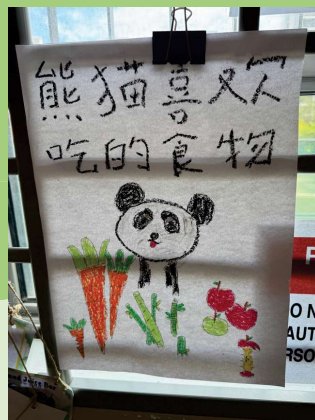 熊猫喜欢
吃的食物